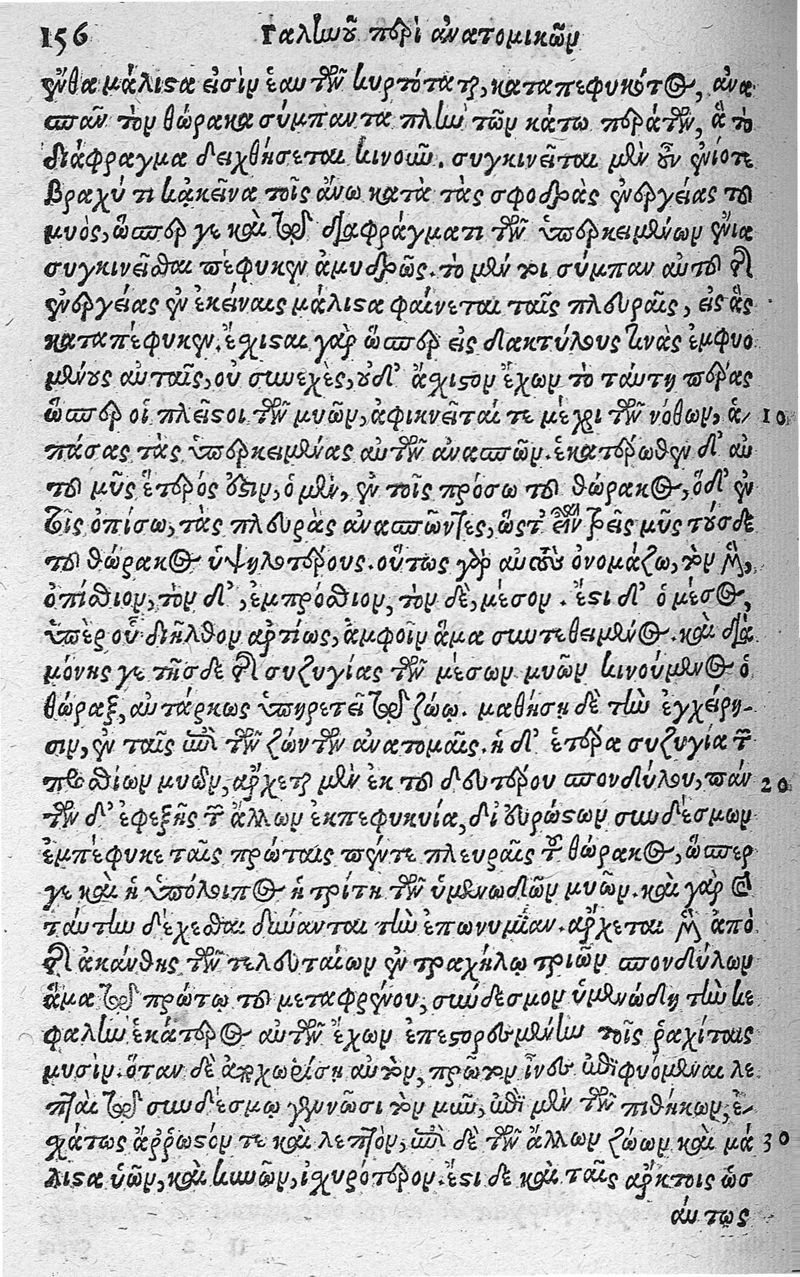 156 Γαληνοῦ περὶ ἀνατομικῶν
ἔνθα μάλιστα εἰσὶν ἑαυτῶν κυρτόταται, καταπεφυκότος, ἀνα
σπᾶν τὸν θώρακα σύμπαντα πλὴν τῶν κάτω περάτων, ἃ τὸ
διάφραγμα δειχθήσεται κινοῦν. συγκινεῖται μὲν οὖν ἐνίοτε
βραχύ τι κἀκεῖνα τοῖς ἄνω κατὰ τὰς σφοδρὰς ἐνεργείας τοῦ
μυὸς, ὥσπερ γε καὶ τῷ διαφράγματι τῶν ὑπερκειμένων ἔνια
συγκινεῖσθαι πέφυκεν ἀμυδρῶς. τὸ μέν τοι σύμπαν αὐτοῦ τῆς
ἐνεργείας ἐν ἐκείναις μάλιστα φαίνεται ταῖς πλευραῖς, εἰς ἃς
καταπέφυκεν. ἔσχισται γὰρ ὥσπερ εἰς δακτύλους τινὰς ἐμφυο
μένους αὐταῖς, οὐ συνεχὲς, οὐδ' ἄσχιστον ἔχων τὸ ταύτῃ πέρας
ὥσπερ οἱ πλεῖστοι τῶν μυῶν, ἀφικνεῖταί τε μέχρι τῶν νόθων, ἁ- 10
πάσας τὰς ὑπερκειμένας αὐτῶν ἀνασπῶν. ἑκατέρωθεν δ' αὐ
τοῦ μῦς ἕτερός ἐστιν, ὁ μὲν, ἐν τοῖς πρόσω τοῦ θώρακος, ὁ δ' ἐν
τοῖς ὀπίσω, τὰς πλευρὰς ἀνασπῶντες, ὥστ' εἶναι τρεῖς μῦς τούσδε
τοῦ θώρακος ὑψηλοτέρους. οὕτως γὰρ αὐτοὺς ὀνομάζω, τὸν μὲν,
ὀπίσθιον, τὸν δ', ἐμπρόσθιον, τὸν δὲ, μέσον. ἔστι δ' ὁ μέσος,
ὑπὲρ οὗ διῆλθον ἀρτίως, ἀμφοῖν ἅμα συντεθειμένος. καὶ διὰ
μόνης γε τῆσδε τῆς συζυγίας τῶν μέσων μυῶν κινούμενος ὁ
θώραξ, αὐτάρκως ὑπηρετεῖ τῷ ζώῳ. μαθήσῃ δὲ τὴν ἐγχείρη-
σιν, ἐν ταῖς ἐπὶ τῶν ζώντων ἀνατομαῖς. ἡ δ' ἑτέρα συζυγία τῶν
προσθίων μυῶν, ἄρχεται μὲν ἐκ τοῦ δευτέρου σπονδύλου, πάν 20
των δ' ἐφεξῆς τῶν ἄλλων ἐκπεφυκυία, δι' εὐρώστων συνδέσμων
ἐμπέφυκε ταῖς πρώταις πέντε πλευραῖς τοῦ θώρακος, ὥσπερ
γε καὶ ἡ ὑπόλοιπος ἡ τρίτη τῶν ὑμενωδῶν μυῶν. καὶ γὰρ καὶ
ταύτην δέχεσθαι δύνανται τὴν ἐπωνυμίαν. ἄρχεται μὲν ἀπὸ
τῆς ἀκάνθης τῶν τελευταίων ἐν τραχήλῳ τριῶν σπονδύλων
ἅμα τῷ πρώτῳ τοῦ μεταφρένου, σύνδεσμον ὑμενώδη τὴν κε
φαλὴν ἑκάτερος αὐτῶν ἔχων ἐπεστορευμένην τοῖς ῥαχίταις
μυσίν. ὅταν δὲ ἀποχωρίσῃ αὐτὸν, πρῶτον ἶνες ἐπιφυόμεναι λε
πταὶ τῷ συνδέσμῳ γεννῶσι τὸν μῦν, ἐπὶ μὲν τῶν πιθήκων, ἐ-
σχάτως ἄῤῥωστόν τε καὶ λεπτὸν, ἐπὶ δὲ τῶν ἄλλων ζώων καὶ μά 30
λιστα ὑῶν, καὶ κυνῶν, ἰσχυρότερον. ἔστι δὲ καὶ ταῖς ἄρκτοις ὡσ
αύτως